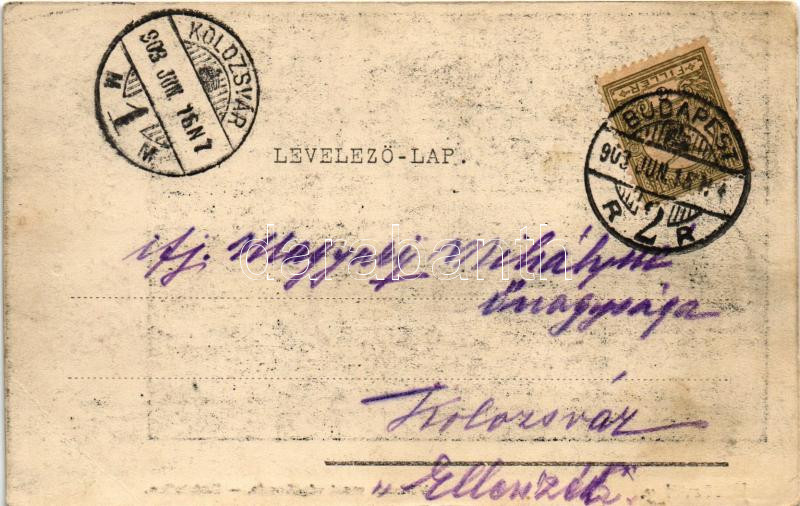 KOLOZSVÁR
903 JUN. 16 N 7
M 1 M
FILLÉR
BUDAPEST
903 JUN.
R 2 R
LEVELEZŐ-LAP.
darabanth
ifj. Magyary Mihályné
őnagysága
Kolozsvár
„Ellenzék”